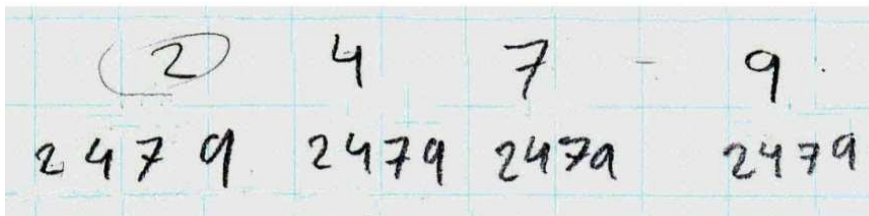 2 4 7 - 9.
2479 2479 2479 2479